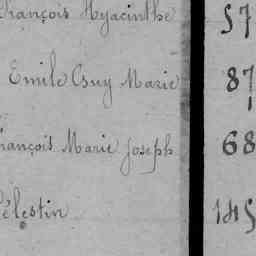 François Hyacinthe 57
Emile Guy Marie 87
François Marie Joseph 68
Célestin 145